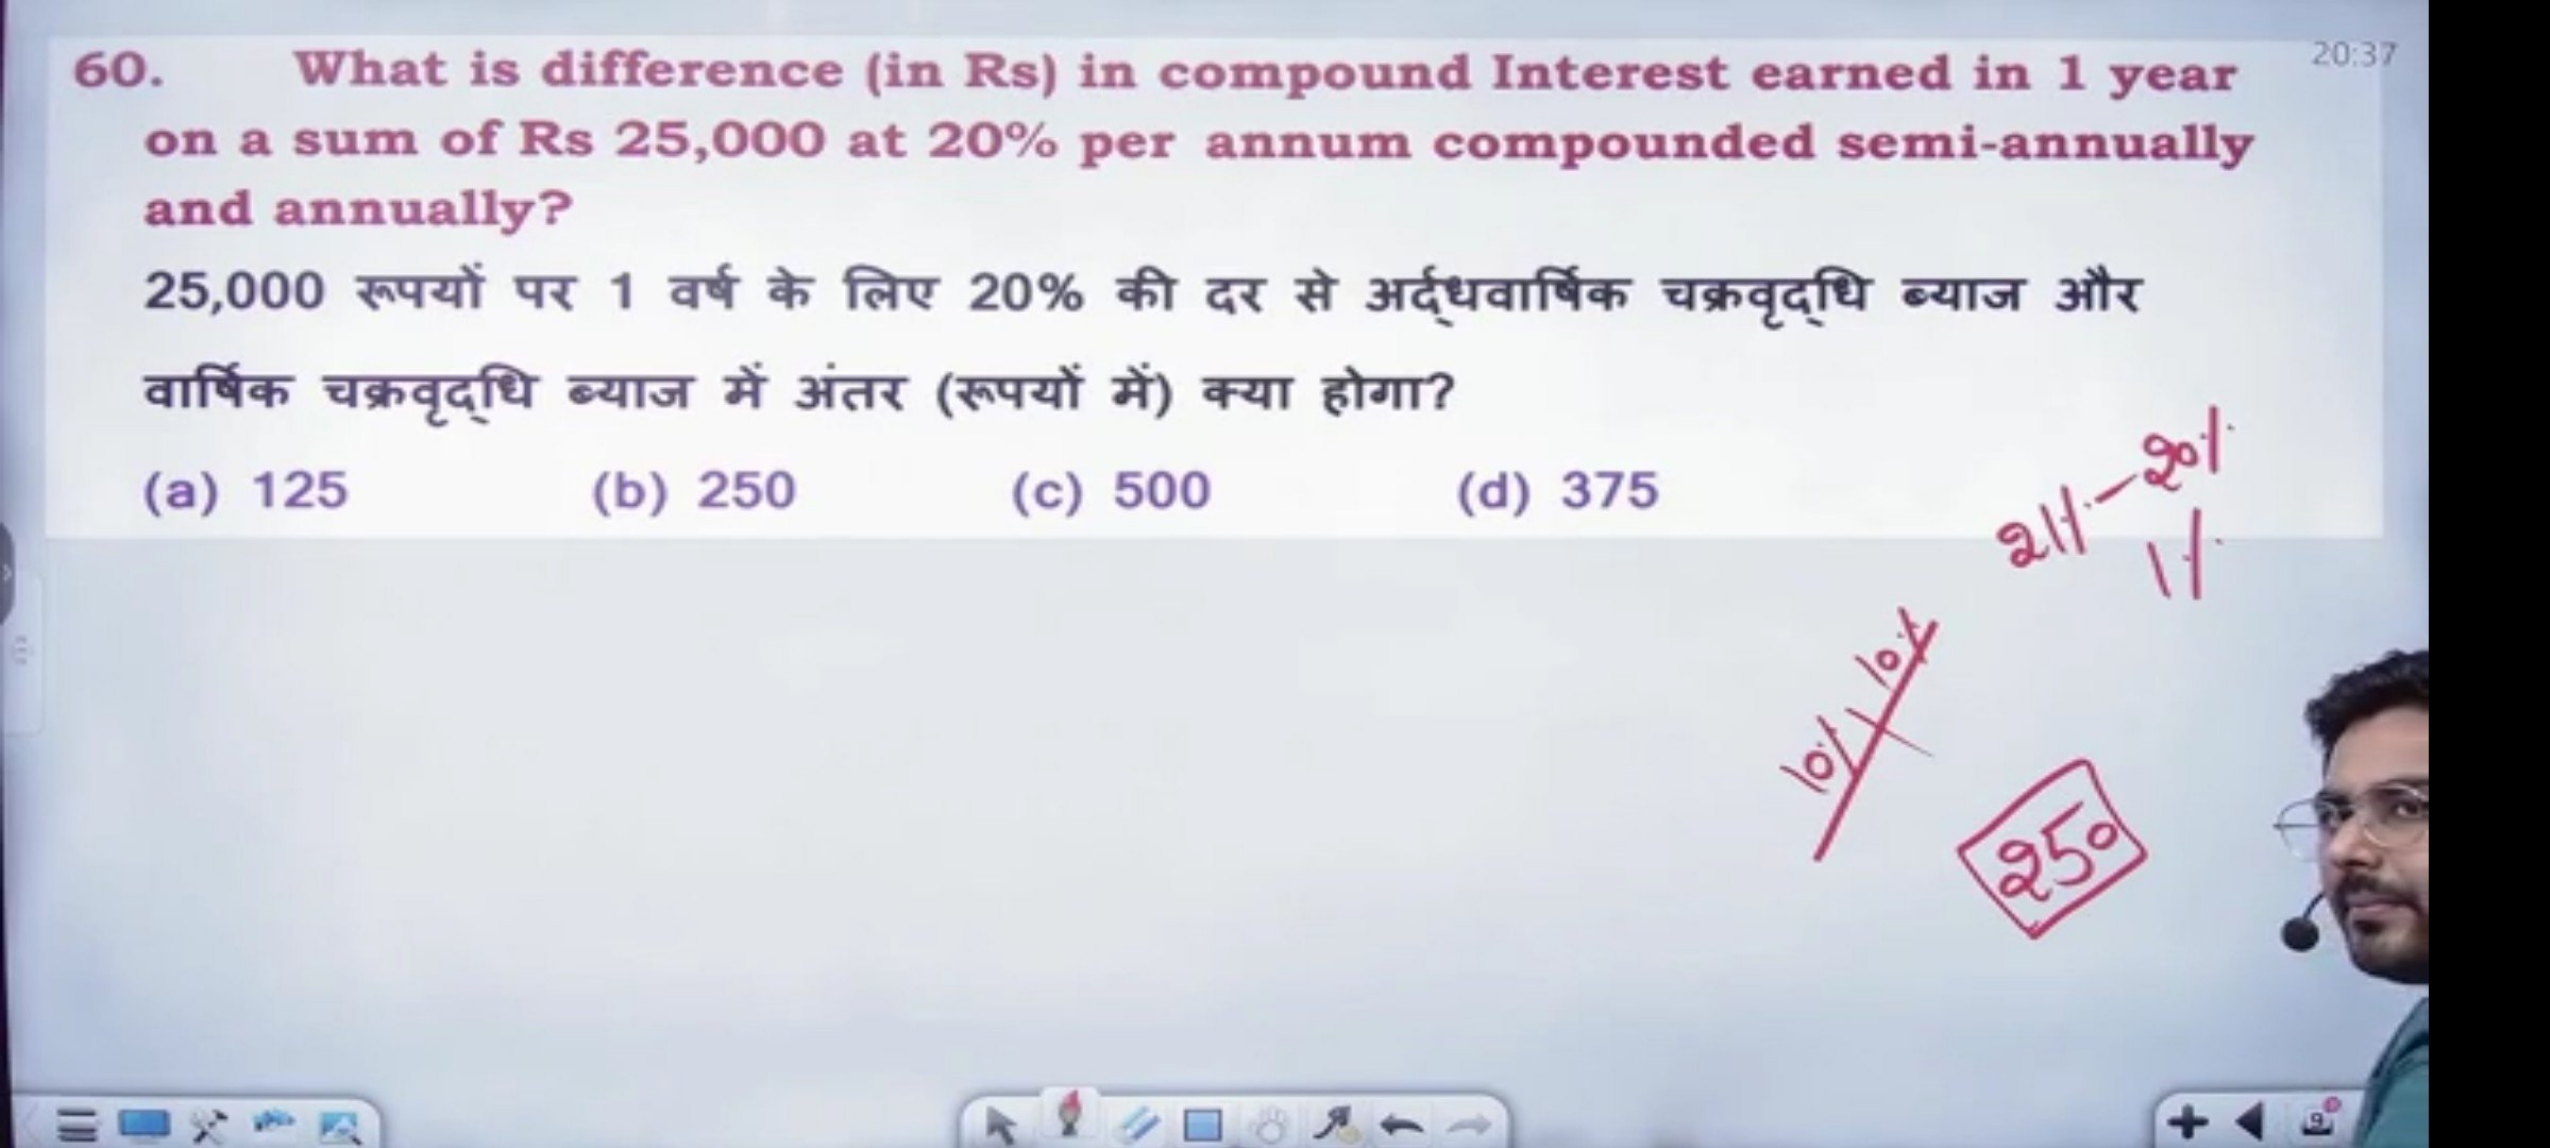 20:37
60. What is difference (in Rs) in compound Interest earned in 1 year
on a sum of Rs 25,000 at 20% per annum compounded semi-annually
and annually?
25,000 रूपयों पर 1 वर्ष के लिए 20% की दर से अर्द्धवार्षिक चक्रवृद्धि ब्याज और
वार्षिक चक्रवृद्धि ब्याज में अंतर (रूपयों में) क्या होगा?
(a) 125 (b) 250 (c) 500 (d) 375
21% - 20%
1%
10% 10%
250